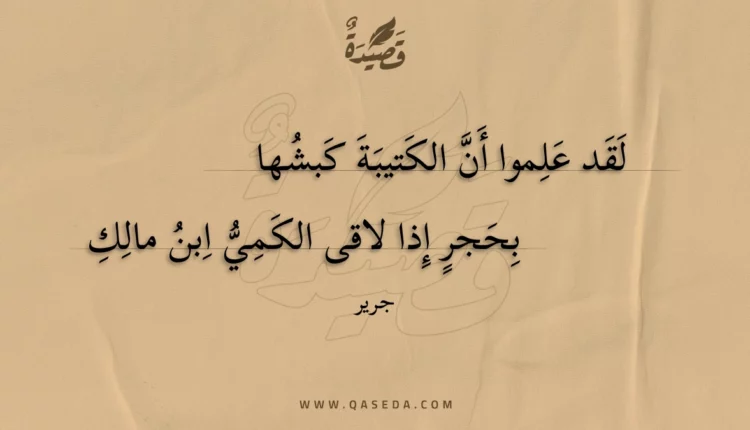 قَصِيدَةٌ
لَقَد عَلِموا أَنَّ الكَتيبَةَ كَبشُها
بِحَجرٍ إِذا لاقى الكَمِيُّ اِبنُ مالِكِ
جرير
WWW.QASEDA.COM